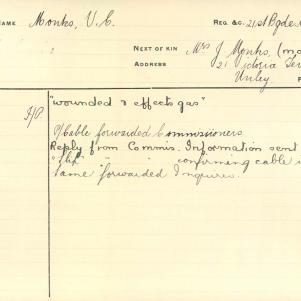 NAME Monks, V. C. REG. &c. 21st Bgde
NEXT OF KIN Mrs J Monks, (mo
ADDRESS 21 Victoria Ter
Unley.
"wounded & effects gas"
Cable forwarded Commissioners
Reply from Commis. Information sent
" " " confirming cable
same forwarded Inquirer.